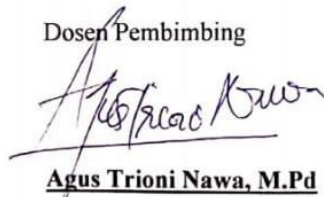 Dosen Pembimbing
Agus Trioni Nawa, M.Pd